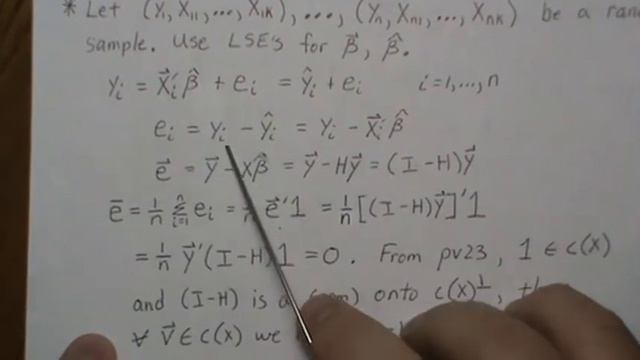 * Let (Y₁, X₁₁, ..., X₁ₖ), ..., (Yₙ, Xₙ₁, ..., Xₙₖ) be a
sample. Use LSE's for β⃗, β̂⃗.
Yᵢ = X⃗ᵢ'β̂⃗ + eᵢ = Ŷᵢ + eᵢ i=1,...,n
eᵢ = Yᵢ - Ŷᵢ = Yᵢ - X⃗ᵢ'β̂⃗
e⃗ = Y⃗ - Xβ̂⃗ = Y⃗ - HY⃗ = (I-H)Y⃗
ē = 1/n Σᵢ₌₁ⁿ eᵢ = 1/n e⃗'1 = 1/n [(I-H)Y⃗]'1
= 1/n Y⃗'(I-H)1 = 0. From pv23, 1 ∈ C(X)
and (I-H) is onto C(X)^⊥,
∀ V⃗ ∈ C(X) we